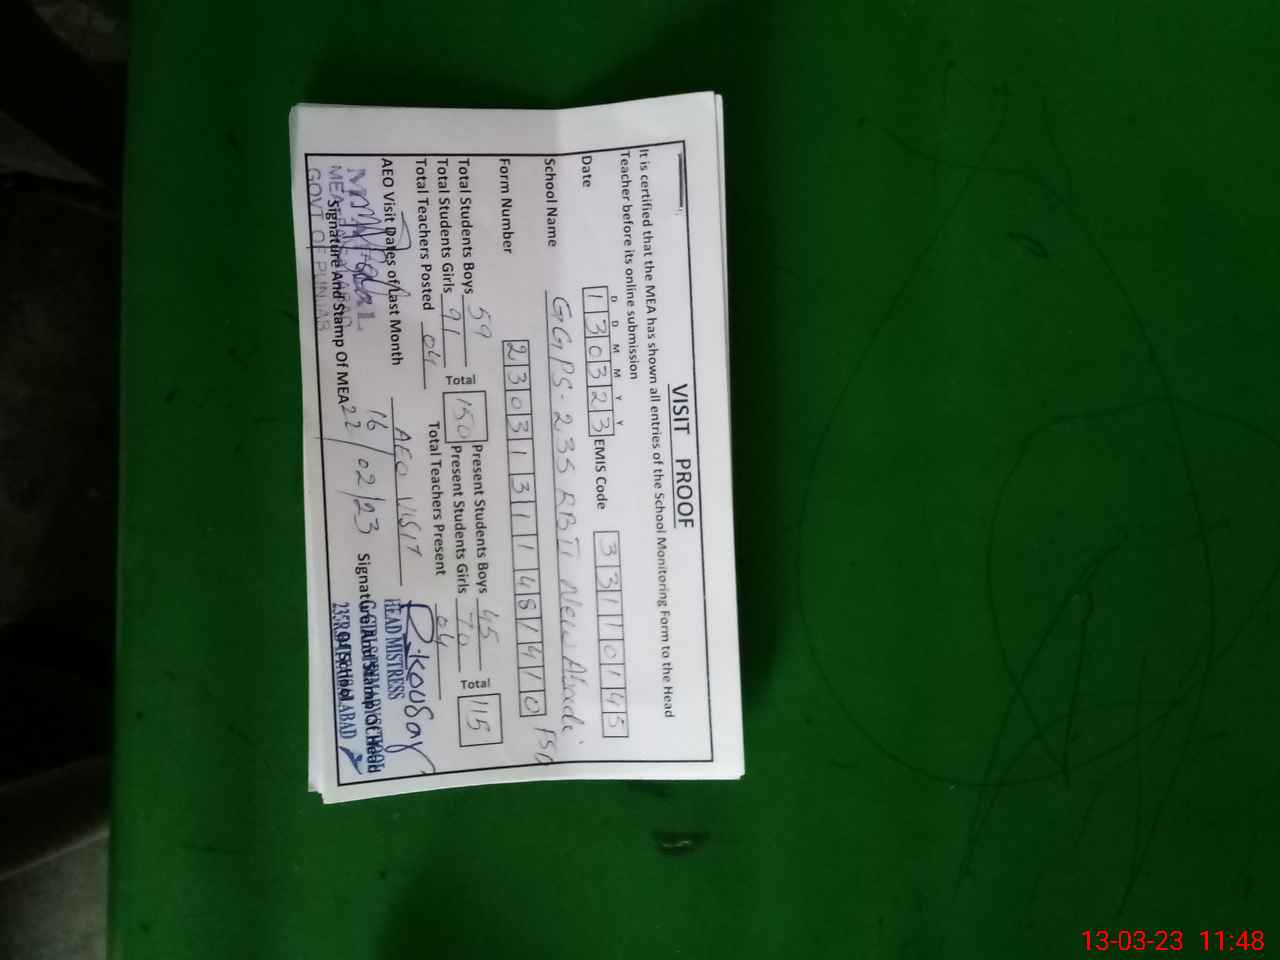 VISIT PROOF
It is certified that the MEA has shown all entries of the School Monitoring Form to the Head
Teacher before its online submission
D D M M Y Y
Date 130323 EMIS Code 33110145
School Name GGPS-235 RB TI New Abadi FSD
Form Number 230313111481410
Total Students Boys 59 Present Students Boys 45
Total Students Girls 91 Total 150 Present Students Girls 70 Total 115
Total Teachers Posted 04 Total Teachers Present 04
AEO Visit Dates of Last Month AEO Visit
16
22/02/23
MEA
GOVT OF PUNJAB
Signature And Stamp Of MEA
R.Kousar
HEAD MISTRESS
Signature And Stamp Of Head
Of School
13-03-23 11:48